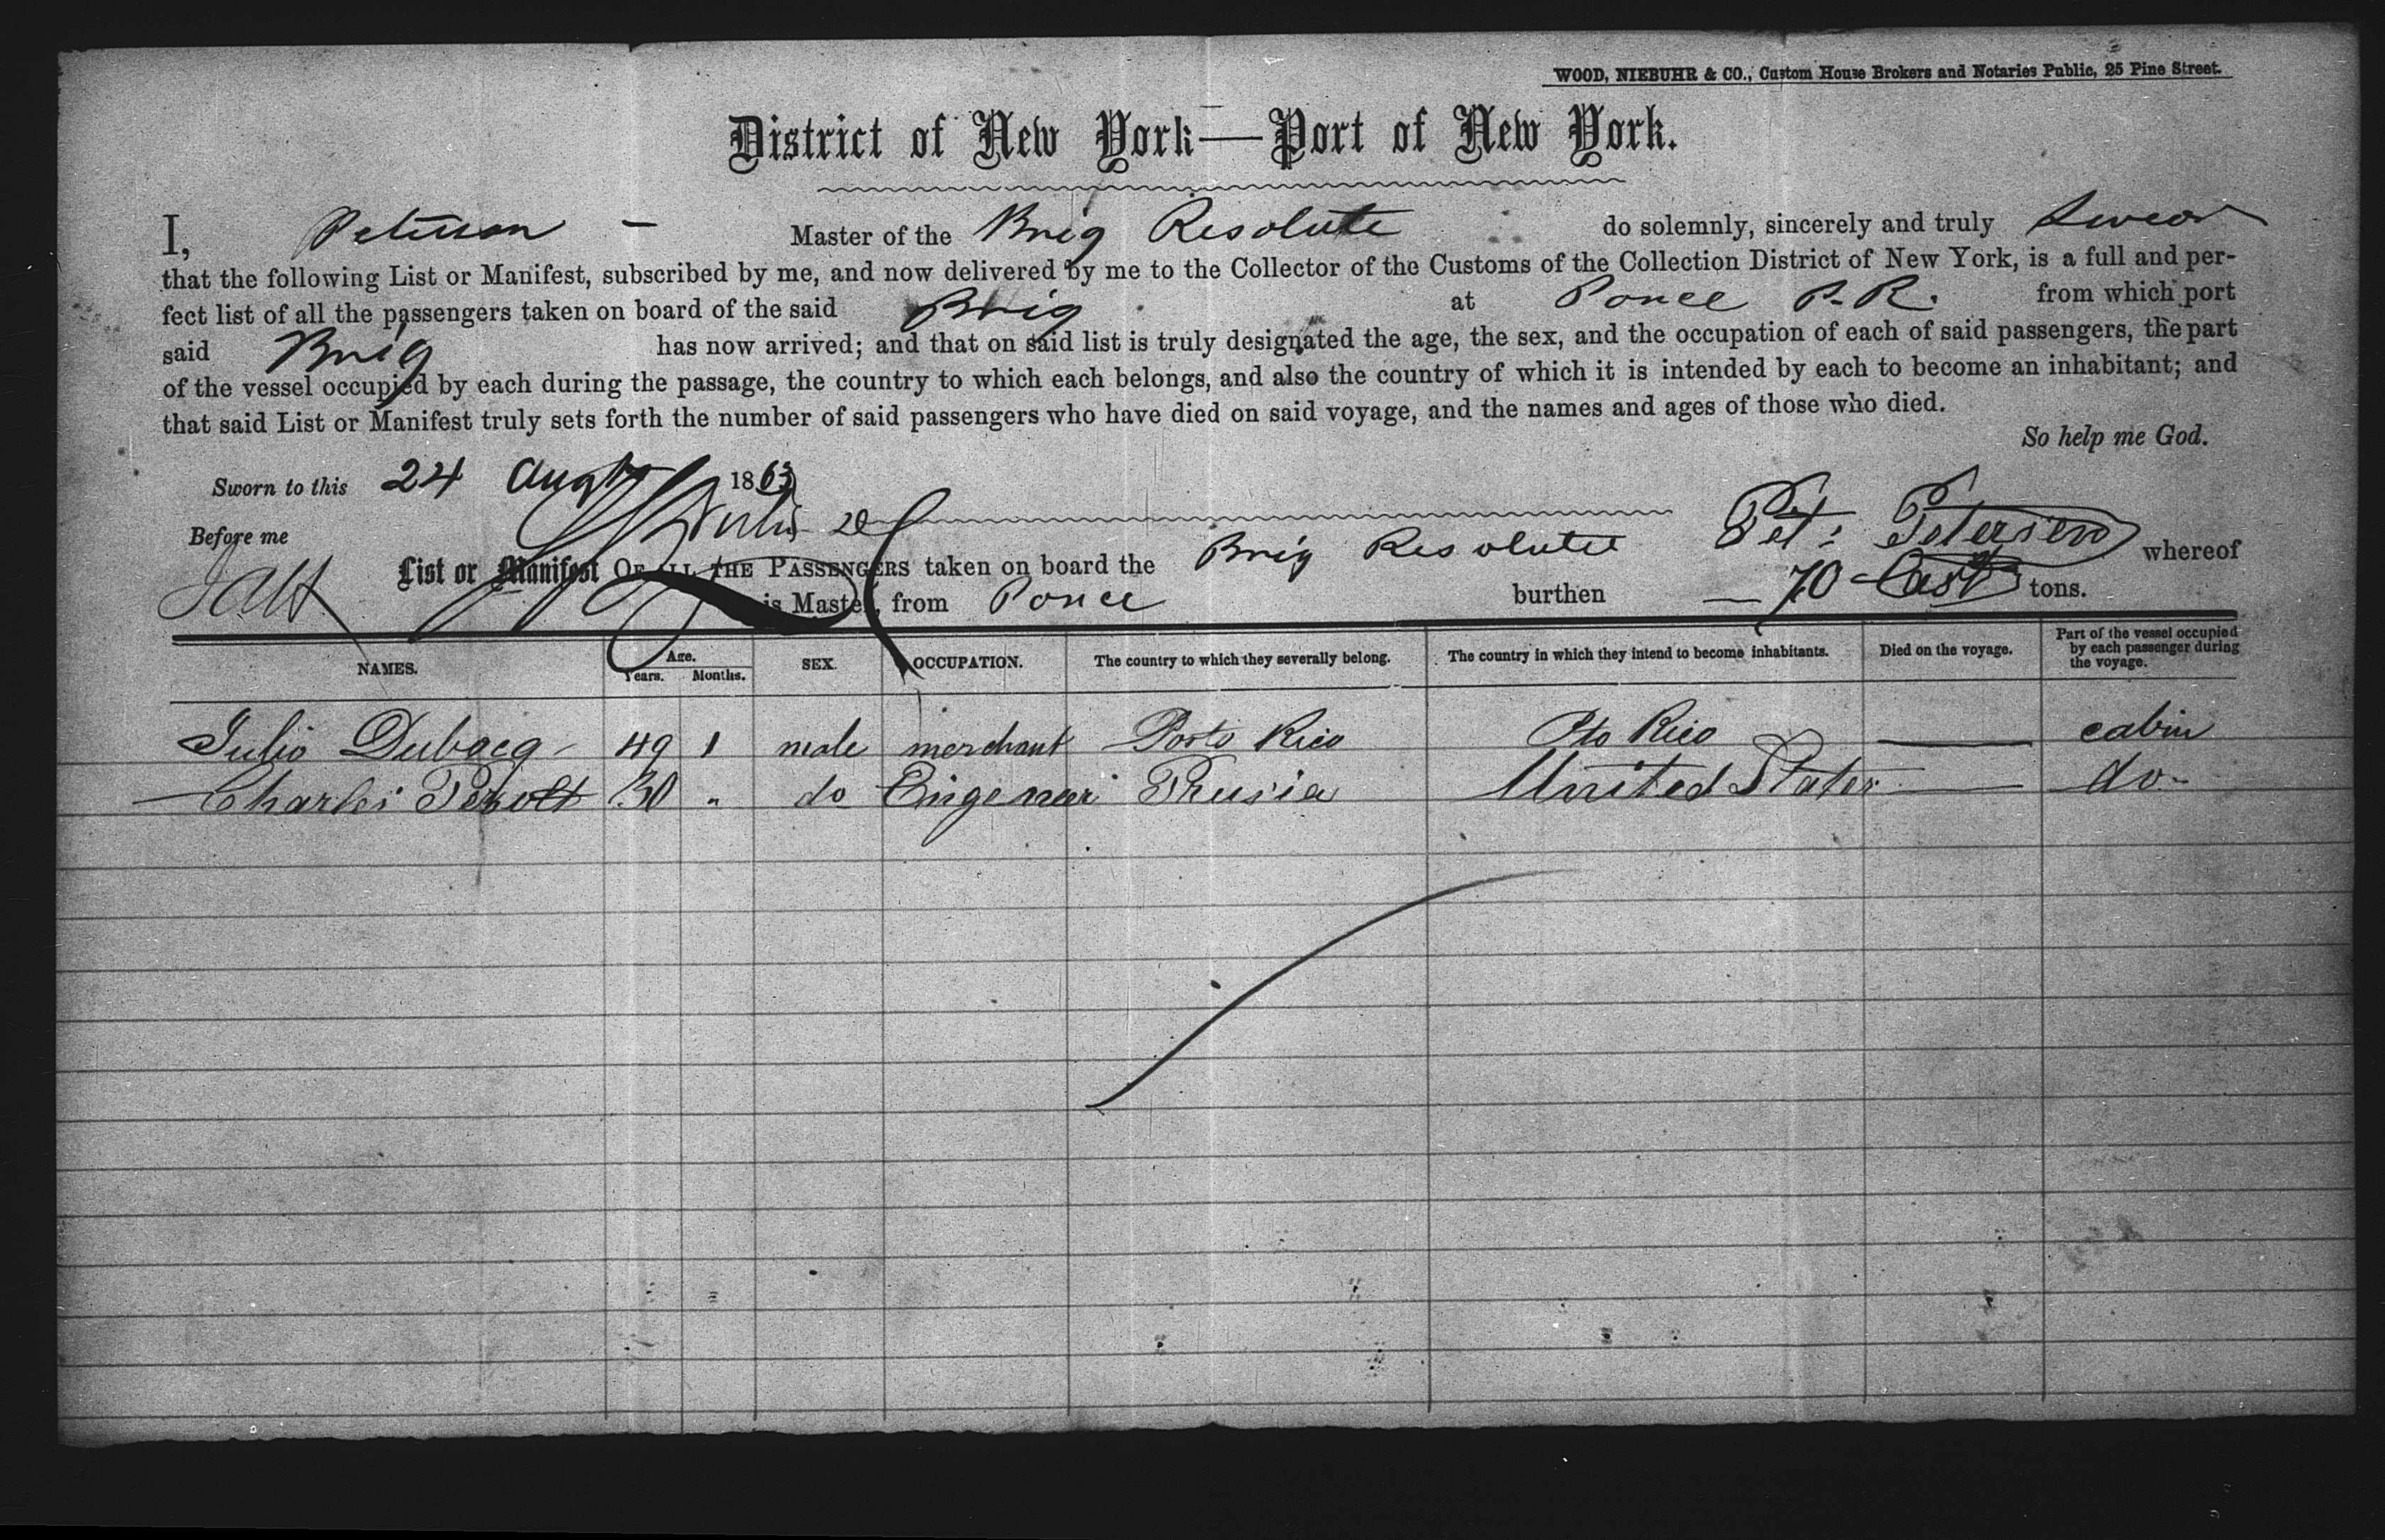 WOOD, NIEBUHR & CO., Custom House Brokers and Notaries Public, 25 Pine Street.
District of New York—Port of New York.
I, Peterson – Master of the Brig Resolute do solemnly, sincerely and truly Swear
that the following List or Manifest, subscribed by me, and now delivered by me to the Collector of the Customs of the Collection District of New York, is a full and per-
fect list of all the passengers taken on board of the said Brig at Ponce P. R. from which port
said Brig has now arrived; and that on said list is truly designated the age, the sex, and the occupation of each of said passengers, the part
of the vessel occupied by each during the passage, the country to which each belongs, and also the country of which it is intended by each to become an inhabitant; and
that said List or Manifest truly sets forth the number of said passengers who have died on said voyage, and the names and ages of those who died.
So help me God.
Sworn to this 24 Augt 1863
Before me
List or Manifest OF ALL THE PASSENGERS taken on board the Brig Resolute Pet: Petersen whereof
is Master, from Ponce burthen — 70 Last tons.
NAMES. Age. Years. Months. SEX. OCCUPATION. The country to which they severally belong. The country in which they intend to become inhabitants. Died on the voyage. Part of the vessel occupied by each passenger during the voyage.
Julio Dubocq 49 1 male merchant Porto Rico Pto Rico — cabin
Charles 30 " do Engeneer Prusia United States — do